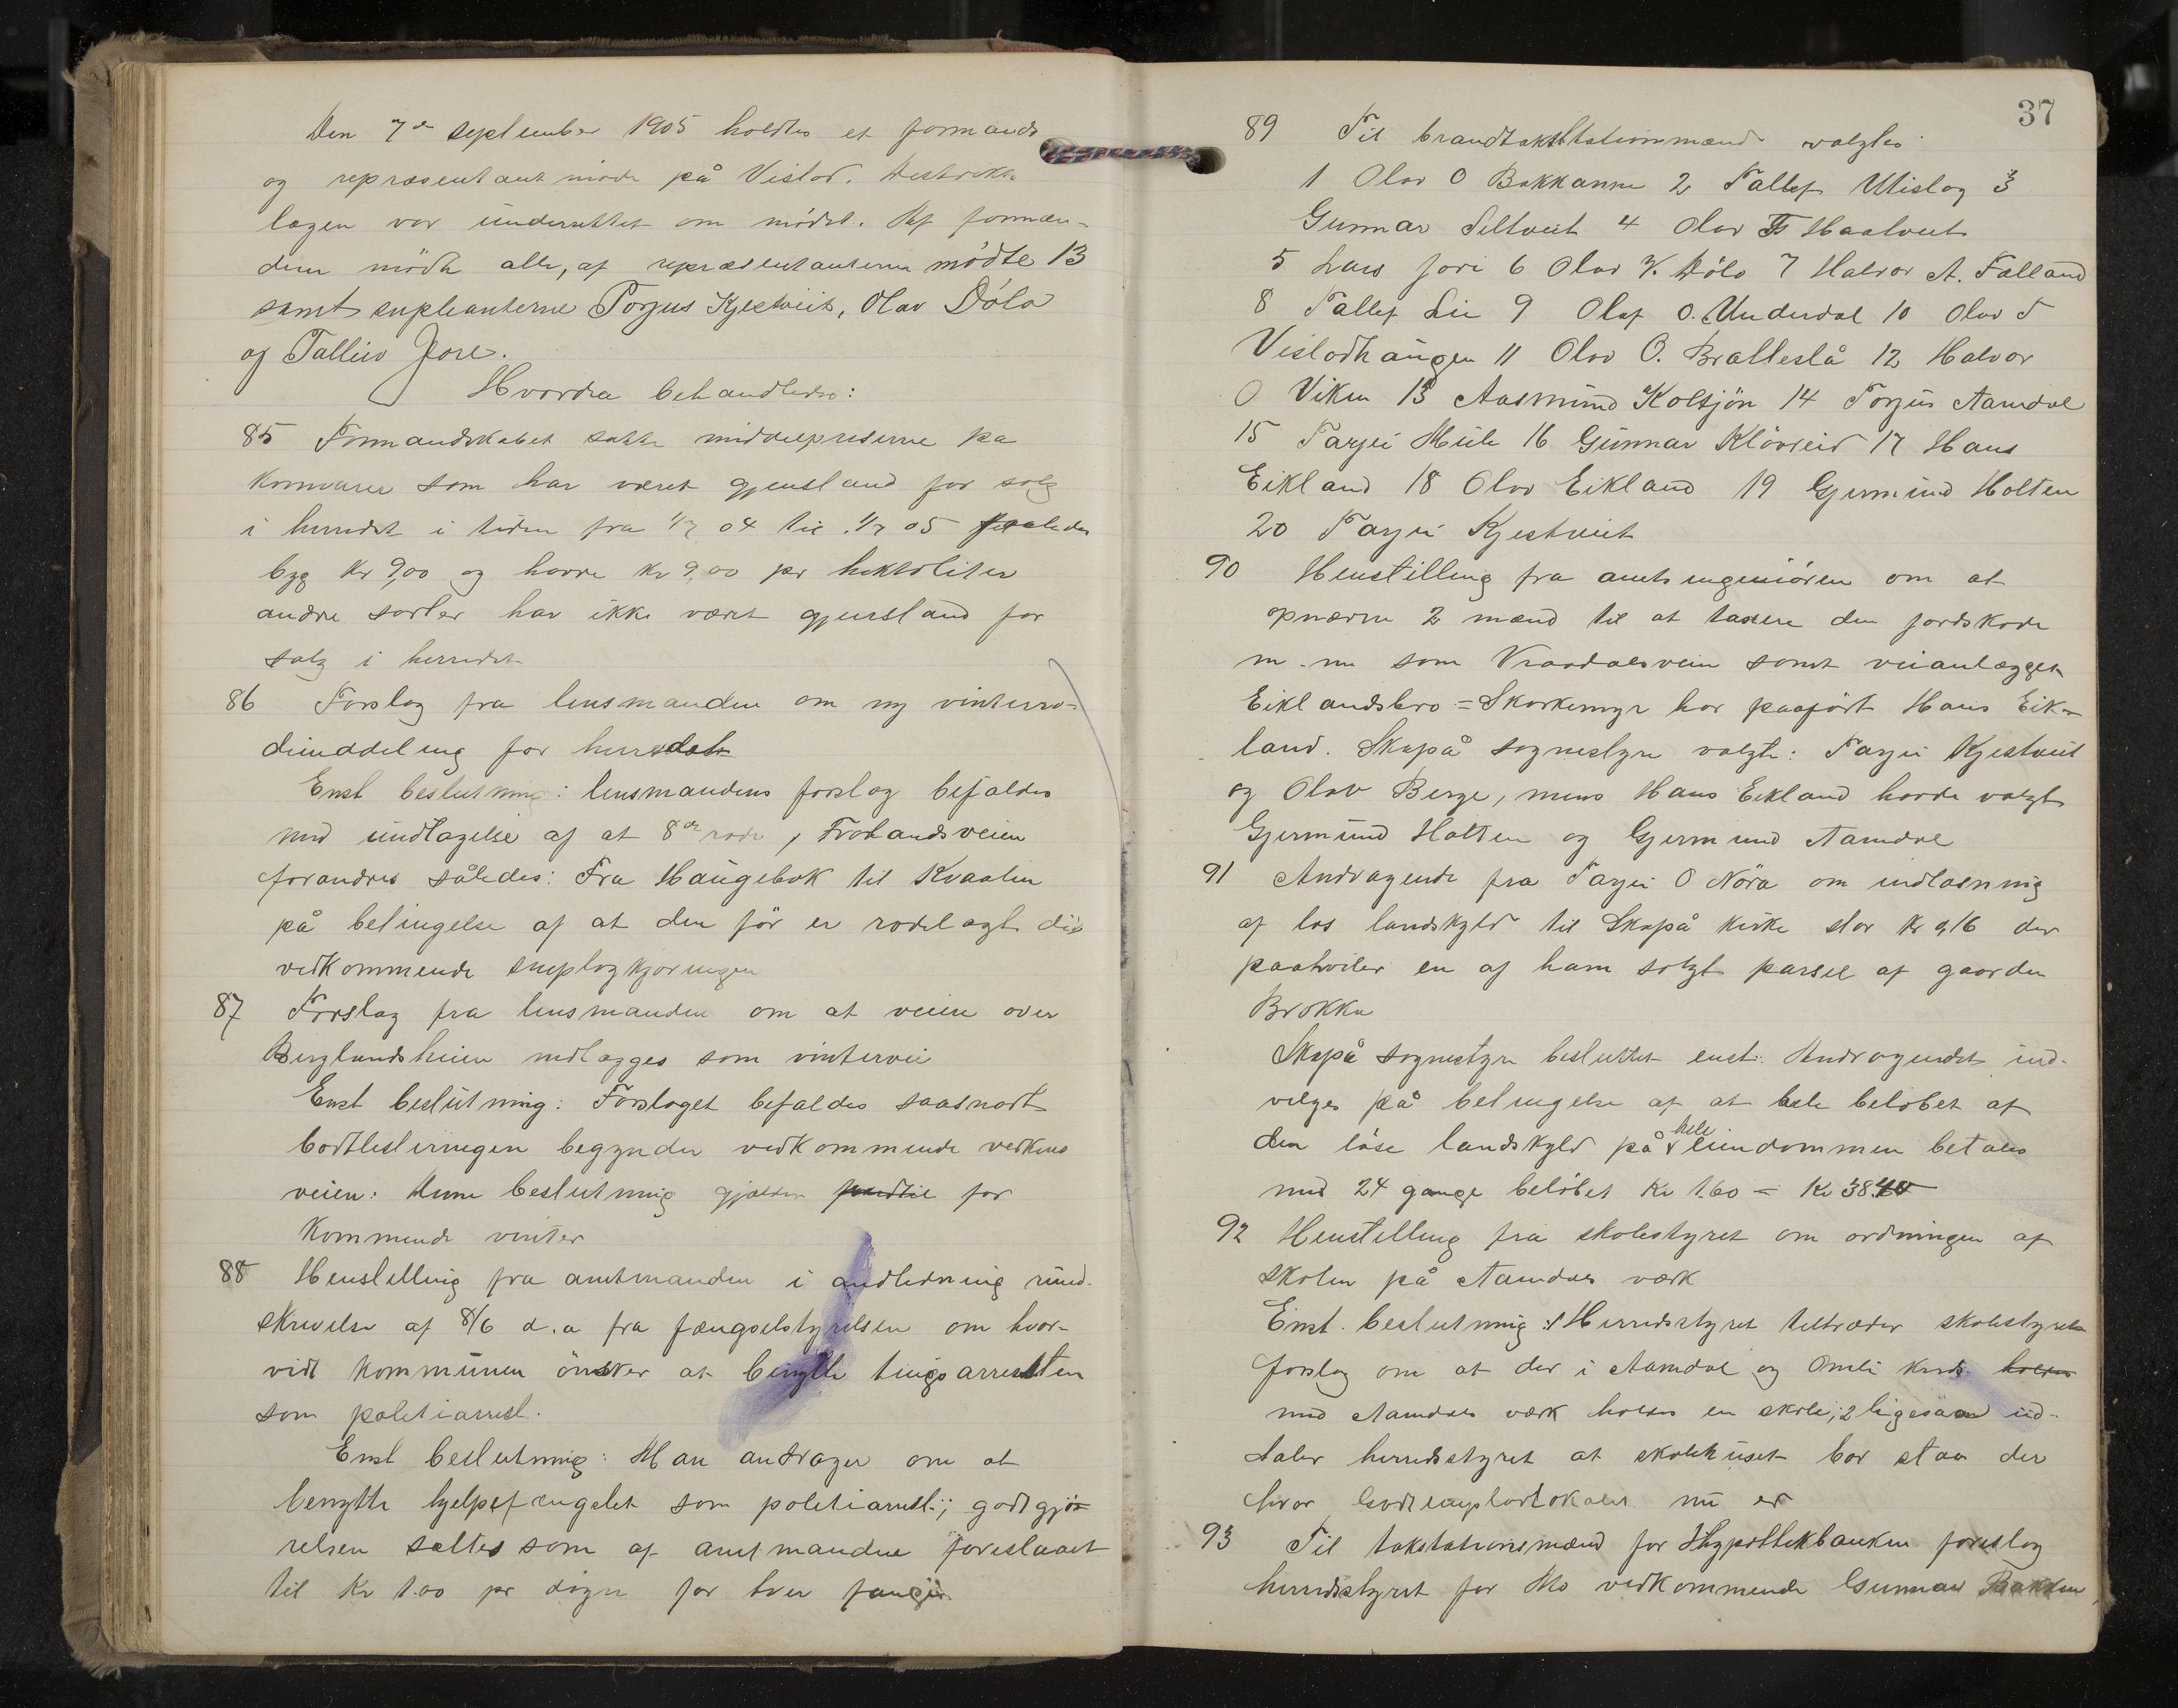 Den 7de september 1905 holdtes et formands
og repræsentant møde på Vislad. Distrikts
lægen var underrettet om mødet. Af formæn-
dene mødte alle, af repræsentanterne mødte 13
samt supleanterne Torjus Kjestveit, Olav Döla
og Talleiv Jore.
Hvorda behandledes:
85 Formandskabet satte middelpriserne på
kornvarer som har været gjenstand for salg
i herredet i tiden fra 1/7 04 til 1/7 05 således
byg Kr 9,00 og havre Kr 9,00 pr hektoliter
andre sorter har ikke været gjenstand for
salg i herredet
86 Forslag fra lensmanden om ny vinterro-
deinddeling for herredet
Enst beslutning: lensmandens forslag bifaldes
med undtagelse af at 8de rode, veien
forandres således: Fra Haugebæk til Kvaalen
på betingelse af at den för er rodelagt
vedkommende sneplogkjøringen
87 Forslag fra lensmanden om at veien over
Berglandsheien nedlægges som vintervei
Enst beslutning: Forslaget bifaldes saasnart
begynder vedkommende
veien: Denne beslutning gjælder for
kommende vinter
88 Henstilling fra amtmanden i andledning rund-
skrivelse af 8/6 d.a fra fængselstyrelsen om hvor-
vidt kommunen önsker at benytte tingsarresten
som politiarrest.
Enst beslutning: Man andrager om at
benytte hjelpefængslet som politiarrest; godtgjø-
relsen sættes som af amtmanden foreslaaet
til Kr 1.00 pr døgn for hver fange.
37
89 Til brandtakstationsmænd valgtes
1 Olav O Bakkanne 2 Tallef Utislog 3
Gunnar Seltveit 4 Olav T Haatveit
5 Lars Jore 6 Olav K. Döla 7 Halvor A. Falland
8 Tallef Lie 9 Olaf O. Underdal 10 Olav S
Visladhaugen 11 Olav O. Bratteslå 12 Halvor
O Viken 13 Aasmund Koltjön 14 Torjus Aamdal
15 Tarjei Mule 16 Gunnar Klövreid 17 Hans
Eikland 18 Olav Eikland 19 Gjermund Holten
20 Tarjei Kjestveit
90 Henstilling fra amtsingeniören om at
opnævne 2 mænd til at taxere den jordskade
m.m som Vraadalsveien samt veianlægget
Eiklandsbro = Skorkemyr har paaført Hans Eik-
land. Skapå sognestyre valgte: Tarjei Kjestveit
og Olav Berge, mens Hans Eikland havde valgt
Gjermund Holten og Gjermund Aamdal
91 Andragende fra Tarjei O Nöra om indløsning
af løs landskyld til Skapå kirke stor Kr 0,16 der
paahviler en af ham solgt parsel af gaarden
Brokke
Skapå sognestyre besluttet enst: Andragendet ind-
vilges på betingelse af at hele beløbet af
den löse landskyld på hele eiendommen betales
med 24 gange beløbet Kr 1.60 = Kr 38.40
92 Henstilling fra skolestyret om ordningen af
skolen på Aamdals værk
Enst. beslutning: 1 Herredsstyret tiltræder skolestyrets
forslag om at der i Aamdal og Omli kreds holdes
med Aamdals værk holdes en skole; 2 ligesaa ud-
taler herredsstyret at skolehuset bør staa der
hvor Godtemplarlokalet nu er
93 Til takstationsmænd for Hypothekbanken foreslog
herredsstyret for Mo vedkommende Gunnar Bakken